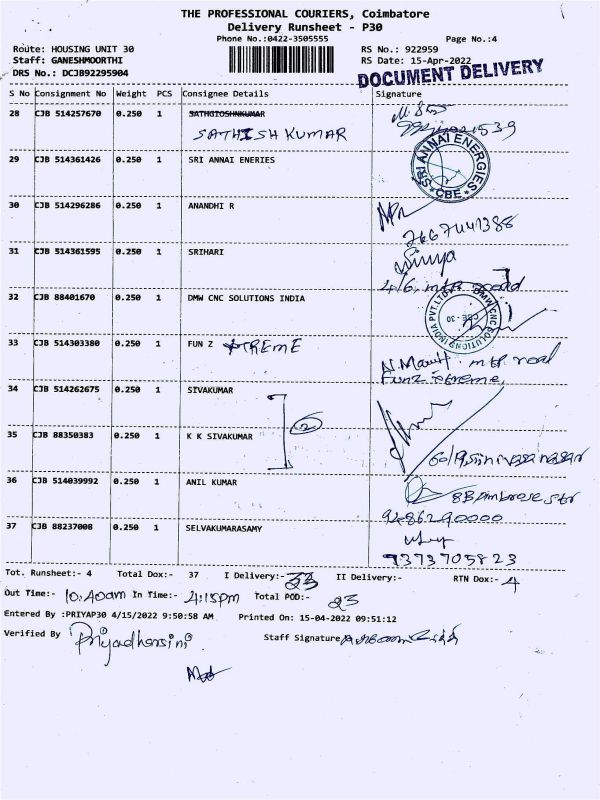 THE PROFESSIONAL COURIERS, Coimbatore
Delivery Runsheet - P30
Phone No.:0422-3505555
Page No.:4
Route: HOUSING UNIT 30
RS No.: 922959
Staff: GANESHMOORTHI
RS Date: 15-Apr-2022
DRS No.: DCJB92295904
DOCUMENT DELIVERY
S No Consignment No Weight PCS Consignee Details Signature
28 CJB 514257670 0.250 1 SATHGIOSHNKUMAR
SATHISH KUMAR
29 CJB 514361426 0.250 1 SRI ANNAI ENERIES
SRI ANNAI ENERGIES CBE
30 CJB 514296286 0.250 1 ANANDHI R
7667441388
31 CJB 514361595 0.250 1 SRIHARI
416, mtp road
32 CJB 88401670 0.250 1 DMW CNC SOLUTIONS INDIA
DMW CNC SOLUTIONS INDIA PVT.LTD. CBE - 30
33 CJB 514303380 0.250 1 FUN Z XTREME
mtp road
Funz xtreme
34 CJB 514262675 0.250 1 SIVAKUMAR
2
35 CJB 88350383 0.250 1 K K SIVAKUMAR
36 CJB 514039992 0.250 1 ANIL KUMAR
8B Ambrose str
9486290000
37 CJB 88237008 0.250 1 SELVAKUMARASAMY
9373705823
Tot. Runsheet:- 4 Total Dox:- 37 I Delivery:- 33 II Delivery:- RTN Dox:- 4
Out Time:- 10.40am In Time:- 4:15pm Total POD:- 23
Entered By :PRIYAP30 4/15/2022 9:50:58 AM Printed On: 15-04-2022 09:51:12
Verified By Priyadharsini Staff Signature